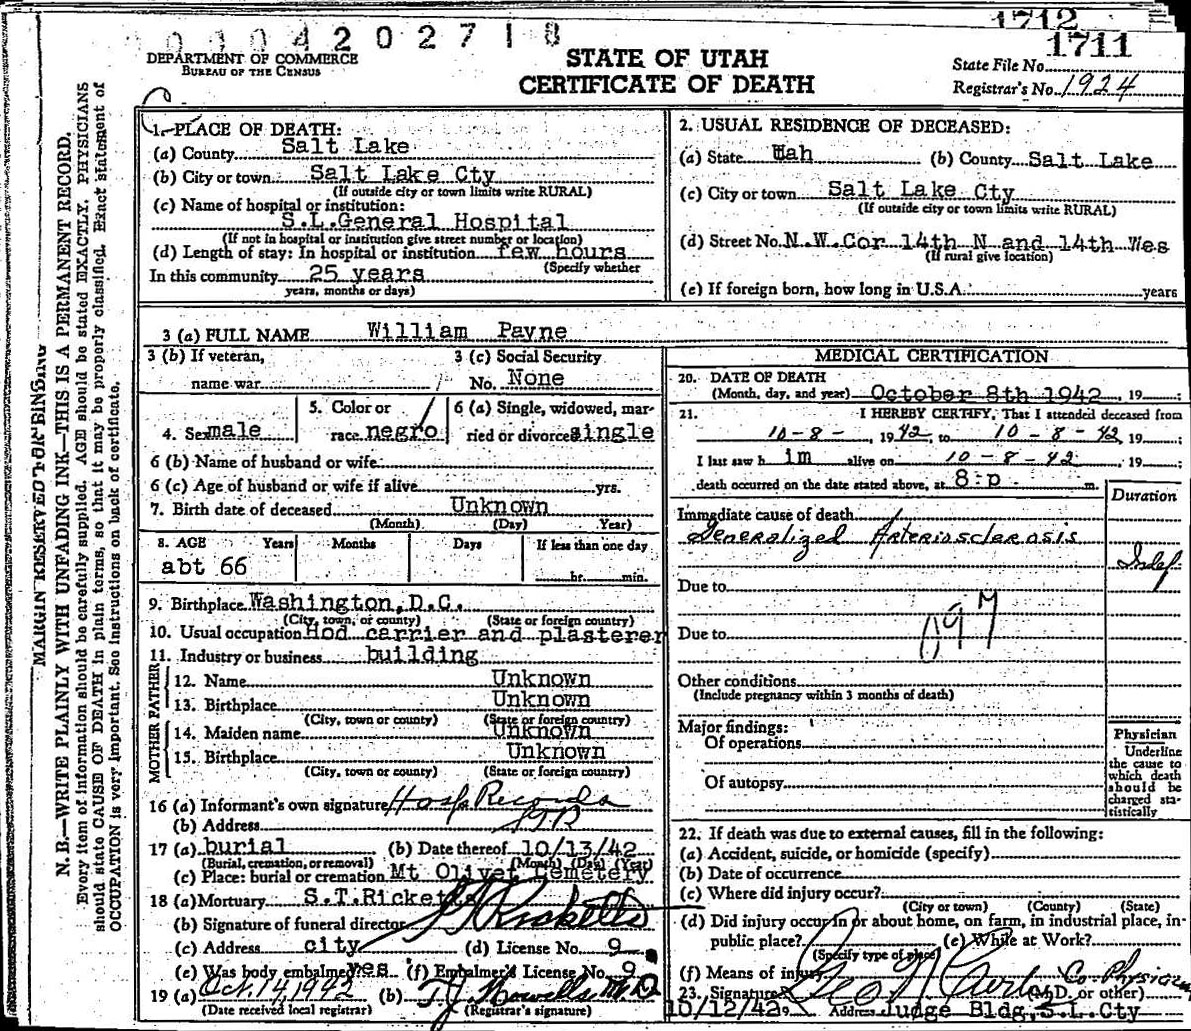 1712
0 0 1 0 4 2 0 2 7 1 8
1711
DEPARTMENT OF COMMERCE
BUREAU OF THE CENSUS
STATE OF UTAH
CERTIFICATE OF DEATH
State File No.
Registrar's No. 1924
MARGIN RESERVED FOR BINDING
N. B.—WRITE PLAINLY WITH UNFADING INK—THIS IS A PERMANENT RECORD.
Every item of information should be carefully supplied. AGE should be stated EXACTLY. PHYSICIANS
should state CAUSE OF DEATH in plain terms, so that it may be properly classified. Exact statement of
OCCUPATION is very important. See instructions on back of certificate.
1. PLACE OF DEATH:
(a) County Salt Lake
(b) City or town Salt Lake Cty
(If outside city or town limits write RURAL)
(c) Name of hospital or institution:
S.L.General Hospital
(If not in hospital or institution give street number or location)
(d) Length of stay: In hospital or institution few hours
(Specify whether
In this community 25 years
years, months or days)
2. USUAL RESIDENCE OF DECEASED:
(a) State Utah (b) County Salt Lake
(c) City or town Salt Lake Cty
(If outside city or town limits write RURAL)
(d) Street No. N.W.Cor 14th N and 14th Wes
(If rural give location)
(e) If foreign born, how long in U.S.A. years
3 (a) FULL NAME William Payne
3 (b) If veteran,
name war
3 (c) Social Security
No. None
4. Sex male
5. Color or
race negro
6 (a) Single, widowed, mar-
ried or divorced single
6 (b) Name of husband or wife
6 (c) Age of husband or wife if alive yrs.
7. Birth date of deceased Unknown
(Month) (Day) Year)
8. AGE Years Months Days If less than one day
abt 66
hr. min.
9. Birthplace Washington,D.C.
(City, town, or county) (State or foreign country)
10. Usual occupation Hod carrier and plasterer
11. Industry or business building
FATHER
12. Name Unknown
13. Birthplace Unknown
(City, town or county) (State or foreign country)
MOTHER
14. Maiden name Unknown
15. Birthplace Unknown
(City, town or county) (State or foreign country)
16 (a) Informant's own signature Hosp Records
(b) Address
17 (a) burial (b) Date thereof 10/13/42
(Burial, cremation, or removal) (Month) (Day) (Year)
(c) Place: burial or cremation Mt Olivet Cemetery
18 (a) Mortuary S.T.Ricketts
(b) Signature of funeral director Ricketts
(c) Address city (d) License No. 9
(e) Was body embalmed? yes (f) Embalmer's License No. 9
19 (a) Oct. 14, 1942 (b)
(Date received local registrar) (Registrar's signature)
MEDICAL CERTIFICATION
20. DATE OF DEATH
(Month, day, and year) October 8th 1942, 19
21. I HEREBY CERTIFY, That I attended deceased from
10-8-, 1942, to 10-8-42, 19 ;
I last saw h im alive on 10-8-42, 19 ;
death occurred on the date stated above, at 8:p m.
Duration
Immediate cause of death
Generalized Arteriosclerosis
Indef
Due to
Due to
Other conditions
(Include pregnancy within 3 months of death)
Major findings:
Of operations
Of autopsy
Physician
Underline
the cause to
which death
should be
charged sta-
tistically
22. If death was due to external causes, fill in the following:
(a) Accident, suicide, or homicide (specify)
(b) Date of occurrence
(c) Where did injury occur?
(City or town) (County) (State)
(d) Did injury occur in or about home, on farm, in industrial place, in
public place? (e) While at Work?
(Specify type of place)
(f) Means of injury
23. Signature Co Physician
(M.D. or other)
10/12/42 Address Judge Bldg,S.L.Cty